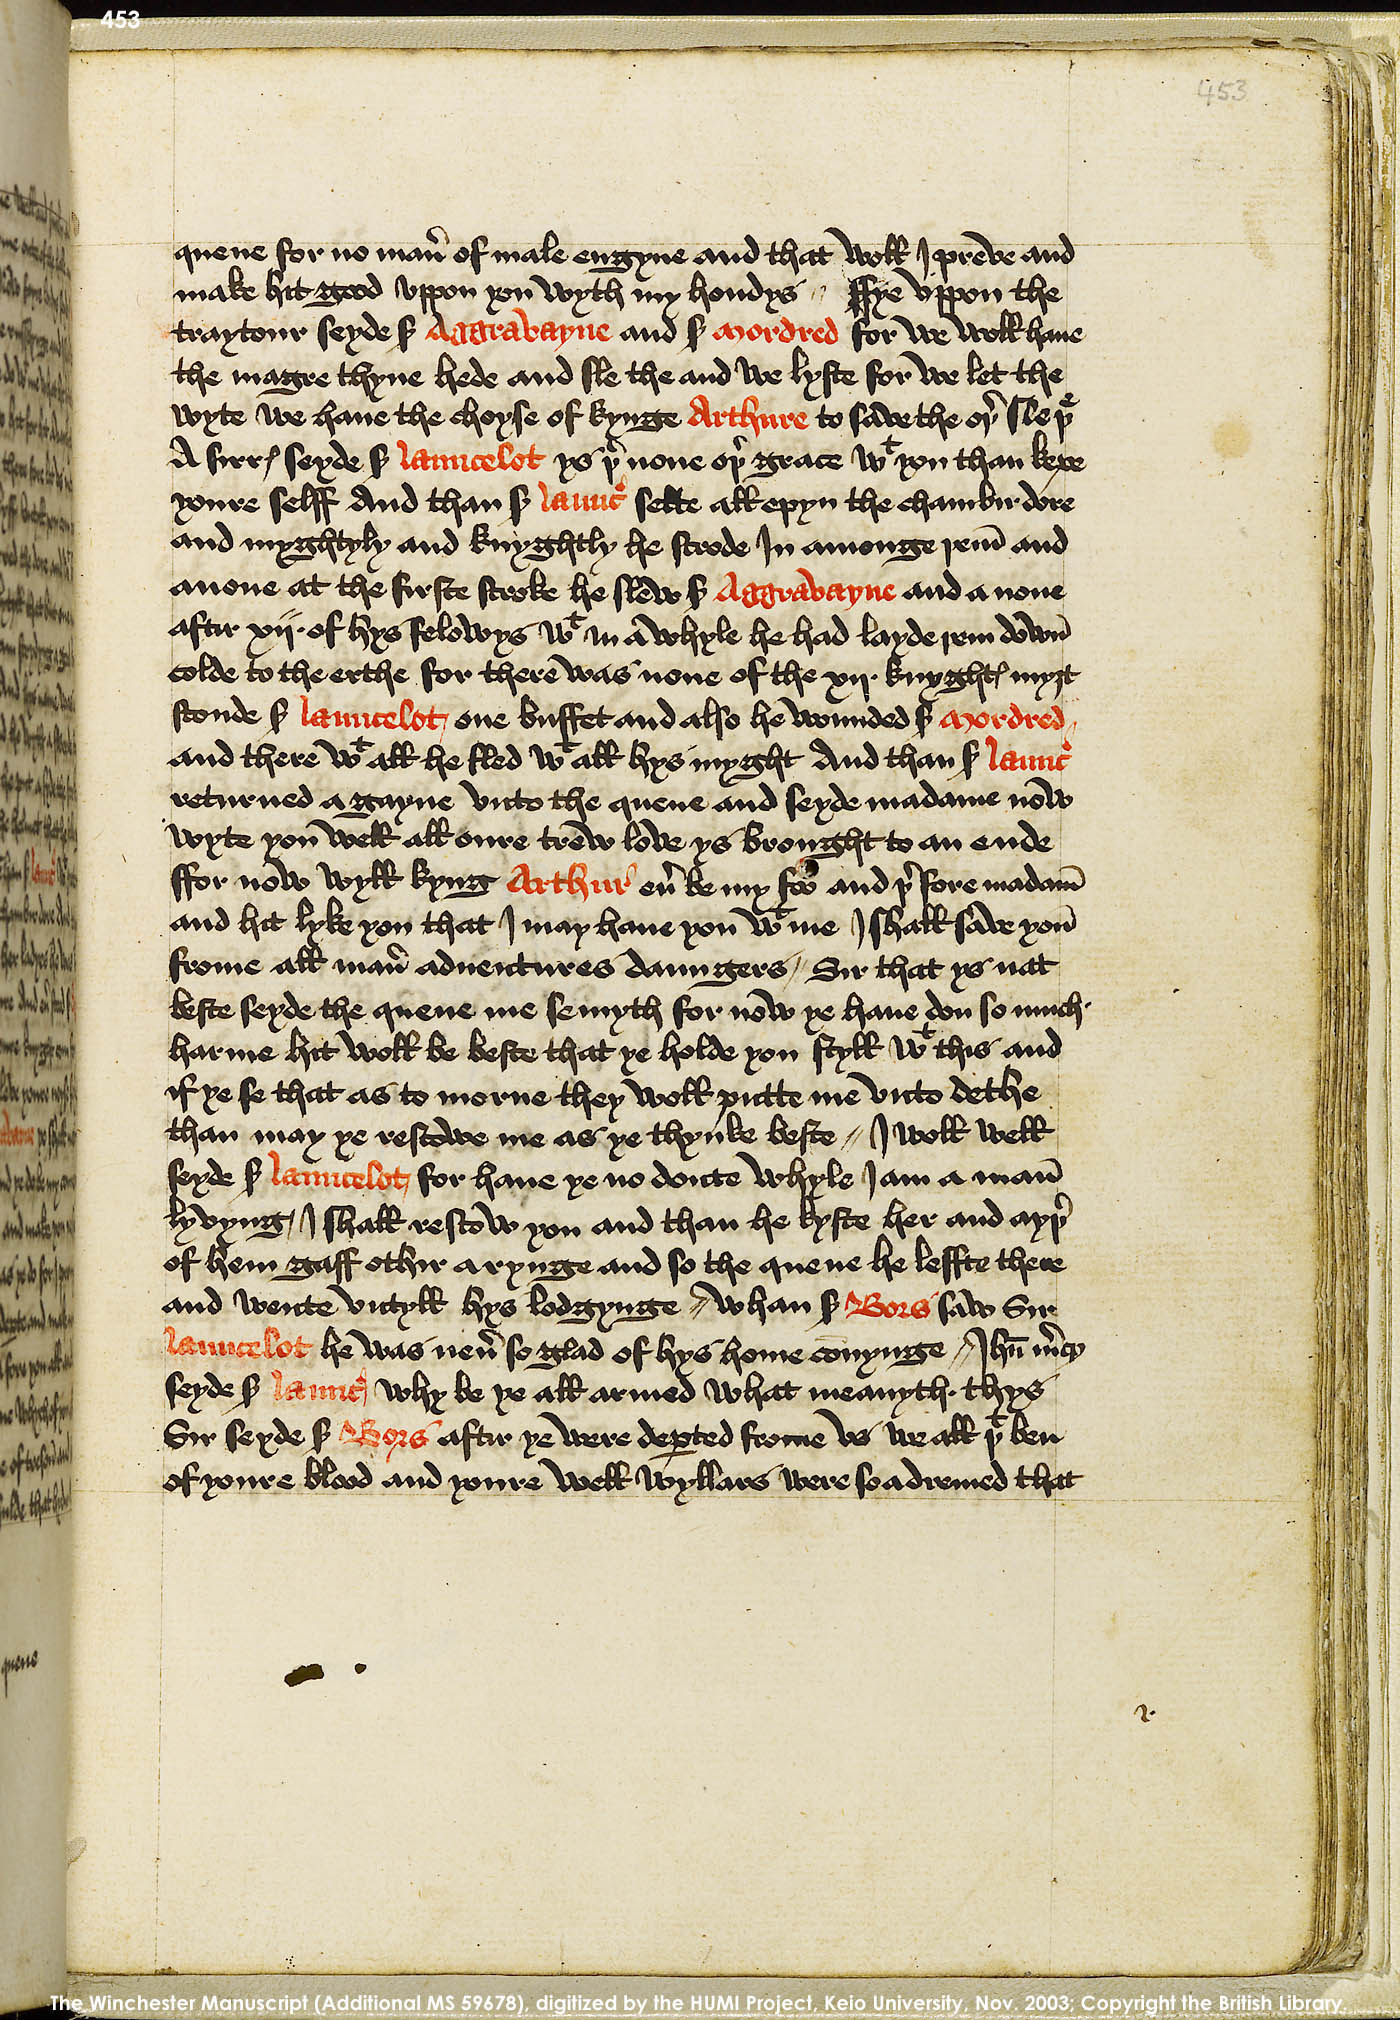 453
453
quene for no man̄ of male engyne and that woll I preve and
make hit good uppon you wyth my hondys // ffye uppon the
traytour seyde sʳ Aggravayne and sʳ Mordred for we woll haue
the magre thyne hede and sle the and we lyste for we let the
wyte we haue the choyse of kynge Arthure to save the oþʳ sle þᵉ
A sirrꝭ seyde sʳ launcelot ys þʳ none oþʳ grace wᵗ you than kepe
youre selff And than sʳ launcʳ sette all opyn the chambir dore
and myghtyly and knyghtly he strode In amonge þem̄ and
anone at the firste stroke he slew sʳ Aggravayne and a none
aftir xij· of hys felowys wᵗ in a whyle he had layde þem down̄
colde to the erthe for there was none of the xij· knyghtꝭ myȝt
stonde sʳ launcelot one buffet and also he wounded sʳ Mordred
and there wᵗ all he fled wᵗ all hys myght And than sʳ launcʳ
returned a gayne unto the quene and seyde madame now
wyte you well all oure trew love ys brought to an ende
ffor now wyll kyng Arthur eūʳ be my foo and þʳ fore madam̄
and hit lyke you that I may haue you wᵗ me I shall save you
frome all man̄ʳ aduentures daungers / Sir that ys nat
beste seyde the quene me semyth for now ye haue don so much·
harme hit woll be beste that ye holde you styll wᵗ this and
if ye se that as to morne they woll putte me unto dethe
than may ye rescowe me as ye thynke beste // I woll well
seyde sʳ launcelot for haue ye no doute whyle I am a man̄
lyvyng / I shall rescow you and than he kyste her and ayþʳ
of hem gaff othir a rynge and so the quene he leffte there
and wente untyll hys lodgynge // Whan sʳ Bors saw Sir
launcelot he was neūʳ so glad of hys home comynge // Jhū m̄cy
seyde sʳ launcʳ why be ye all armed what meanyth· thys
Sir seyde sʳ Bors aftir ye were deꝑted frome us we all þᵗ ben
of youre blood and youre well wyllars were so adremed that
quene
The Winchester Manuscript (Additional MS 59678), digitized by the HUMI Project, Keio University, Nov. 2003; Copyright the British Library.